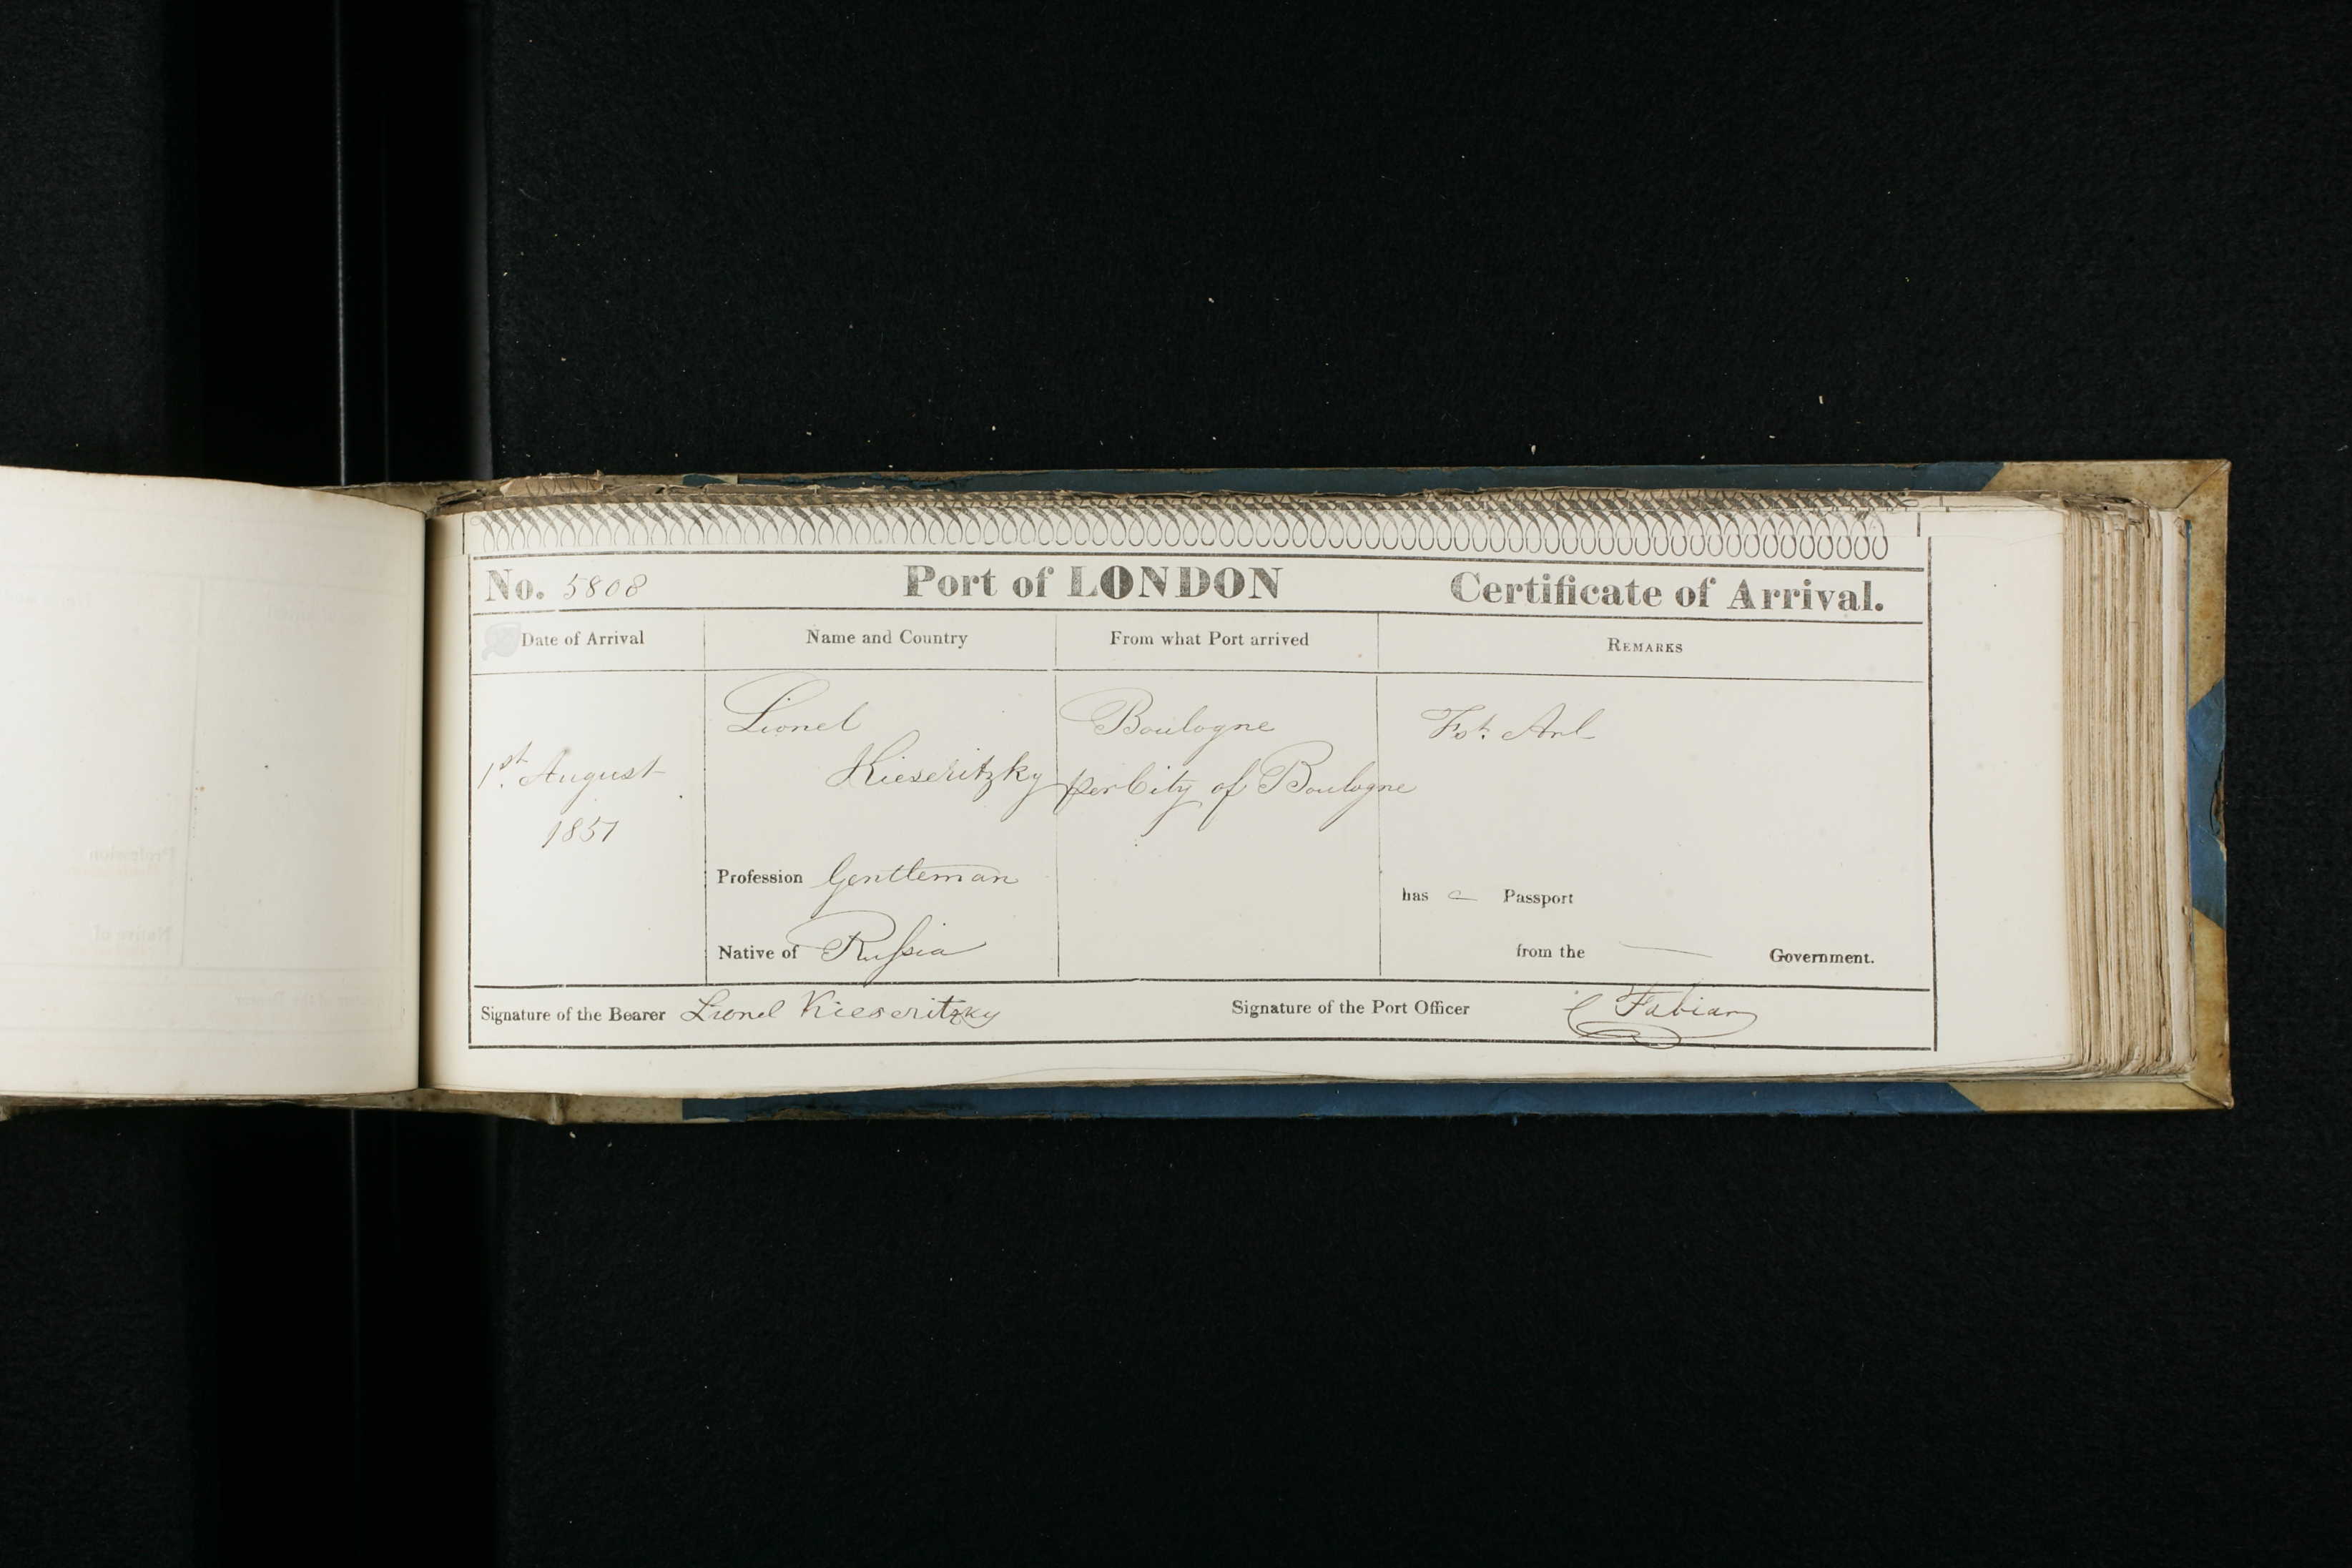 No. 5808 Port of LONDON Certificate of Arrival.
Date of Arrival Name and Country From what Port arrived REMARKS
Lionel Boulogne Fst. Arl
1st. August Kieseritzky per City of Boulogne
1851
Profession Gentleman
has a Passport
Native of Russia from the Government.
Signature of the Bearer Lionel Kieseritzky Signature of the Port Officer C Fabian